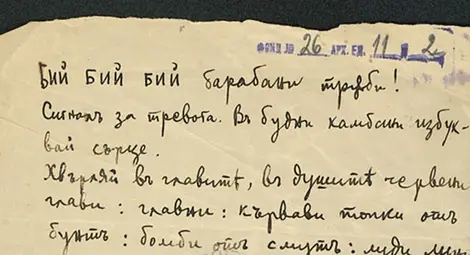 ФОНД № 26 АРХ. ЕД. 11 л 2
БИЙ БИЙ БИЙ барабани тръби!
Сигналъ за тревога. Въ будни камбани избук-
вай сърце.
Хвърляй въ главитѣ, въ душитѣ червени
глави: главни: кървави топки отъ
бунтъ: бомби отъ смутъ: люди